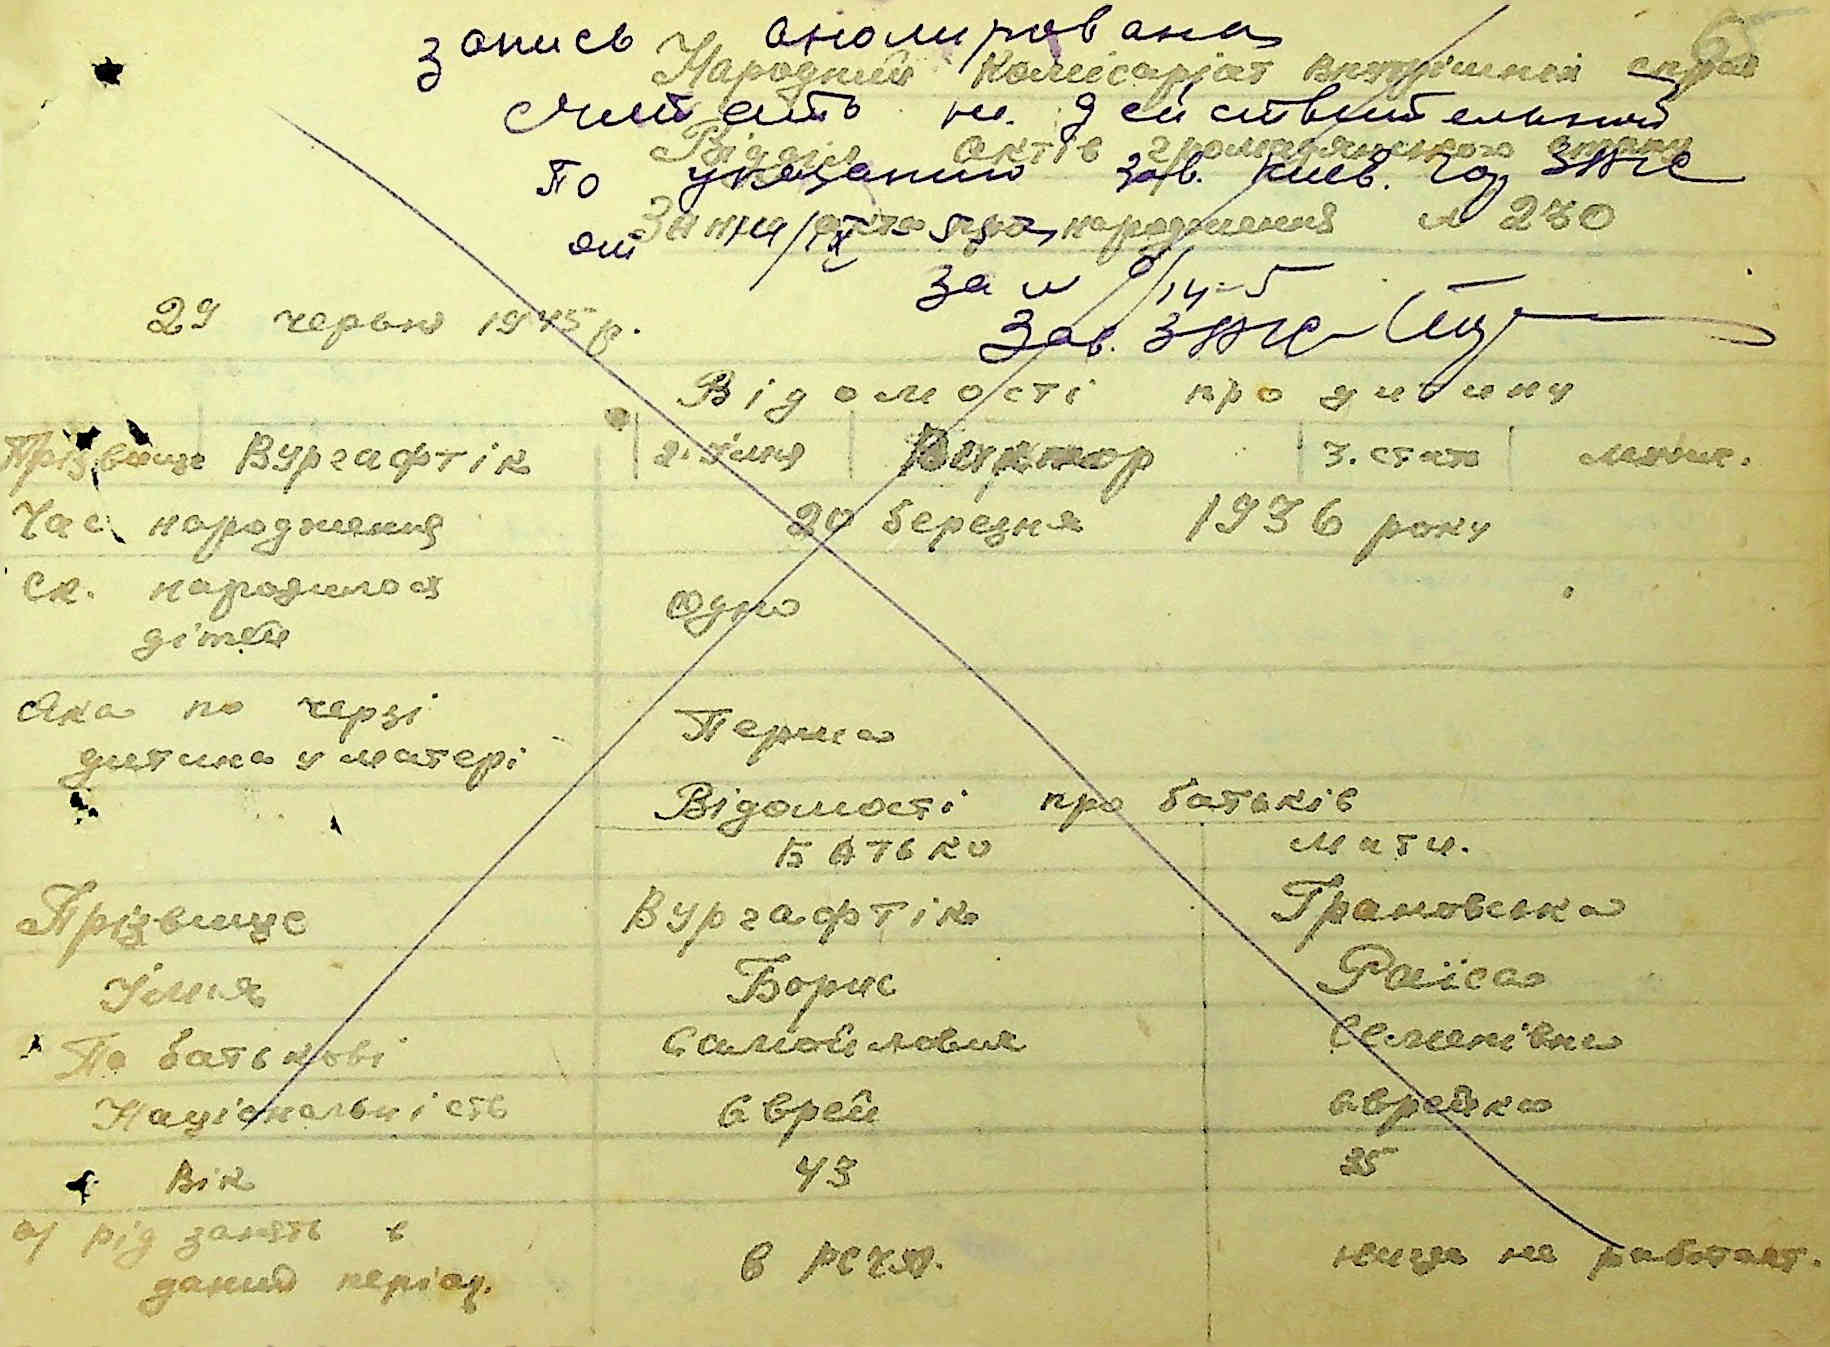 запись анолирована
Народний Комісаріат внутрішніх справ
считать не действительной
Відділ актів громадянського стану
По указанию зав. Киев. Гор ЗАГС
Запис акта про народження № 270
от
за №
29 червня 1945 р.
Зав. ЗАГС
Відомості про дитину
Прізвище Вургафтік 2. Ім'я Віктор 3. стать
Час народження 20 березня 1936 року
Ск. народилося дітей одно
Яка по черзі
дитина у матері Перша
Відомості про батьків
Батько Мати.
Прізвище Вургафтік Грановська
Ім'я Борис Раїса
По батькові Самойлович Семенівна
Національність Єврей Єврейка
Вік 43 35
а) рід занять в
даний період. нигде не работает.